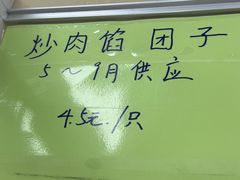 炒肉馅 团子
5～9月供应
4.5元/只